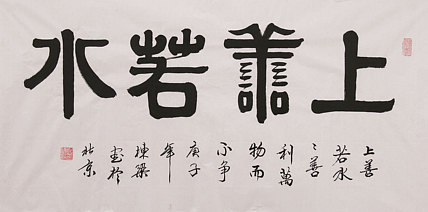 上譱若水
上善
若水
〻善
利萬
物而
不争
庚子
年
書於
北京